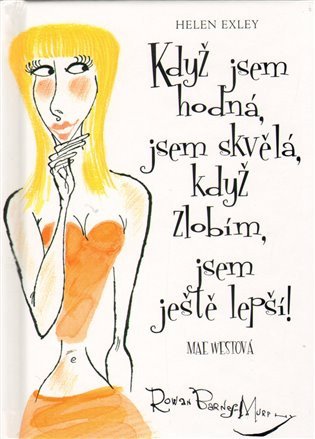 HELEN EXLEY
Když jsem
hodná,
jsem skvělá,
když
zlobím,
jsem
ještě lepší!
MAE WESTOVÁ
ROWAN BARNES-MURPHY